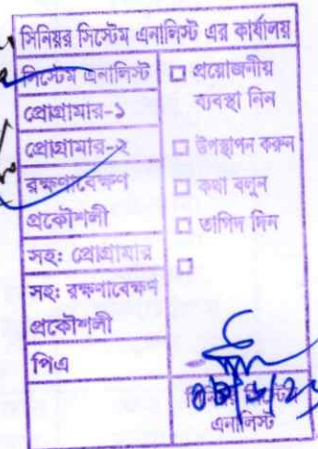 সিনিয়র সিস্টেম এনালিস্ট এর কার্যালয়
সিস্টেম এনালিস্ট
প্রোগ্রামার-১
প্রোগ্রামার-২
রক্ষণাবেক্ষণ
প্রকৌশলী
সহ: প্রোগ্রামার
সহ: রক্ষণাবেক্ষণ
প্রকৌশলী
পিএ
প্রয়োজনীয়
ব্যবস্থা নিন
উপস্থাপন করুন
কথা বলুন
তাগিদ দিন
এনালিস্ট